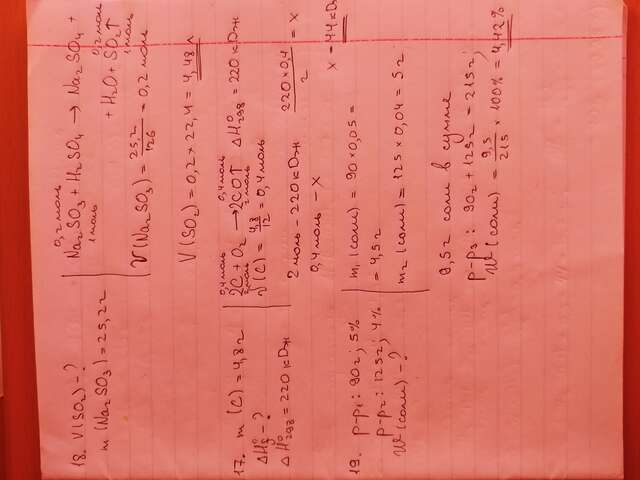 18. V(SO₂) - ?
m (Na₂SO₃) = 25,2 г
0,2 моль 0,2 моль
Na₂SO₃ + H₂SO₄ → Na₂SO₄ +
1 моль
+ H₂O + SO₂↑
1 моль
ν(Na₂SO₃) = 25,2/126 = 0,2 моль
V(SO₂) = 0,2 × 22,4 = 4,48 л
17. m (C) = 4,8 г
ΔH°₃ - ?
ΔH°₂₉₈ = 220 кДж
0,4 моль 0,4 моль
2C + O₂ → 2CO↑ ΔH°₂₉₈ = 220 кДж
2 моль 2 моль
ν(C) = 4,8/12 = 0,4 моль
2 моль - 220 кДж
0,4 моль - x
220 × 0,4 / 2 = x
x = 44 кДж
19. р-р₁: 90 г; 5%
р-р₂: 125 г; 4%
W(соли) - ?
m₁ (соли) = 90 × 0,05 =
= 4,5 г
m₂ (соли) = 125 × 0,04 = 5 г
9,5 г соли в сумме
р-р₃: 90 г + 125 г = 215 г;
W (соли) = 9,5/215 × 100% = 4,42%